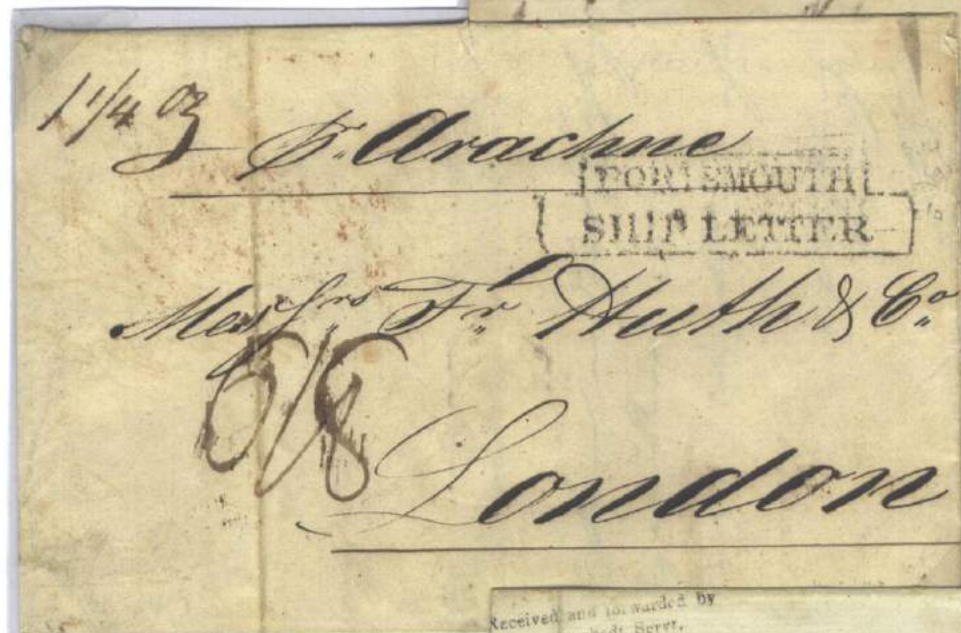 1 1/4 oz
Pr. Arachne
PORTSMOUTH
SHIP LETTER
Messrs Fr. Huth & Co.
6/8
London
Received and forwarded by
Servt.